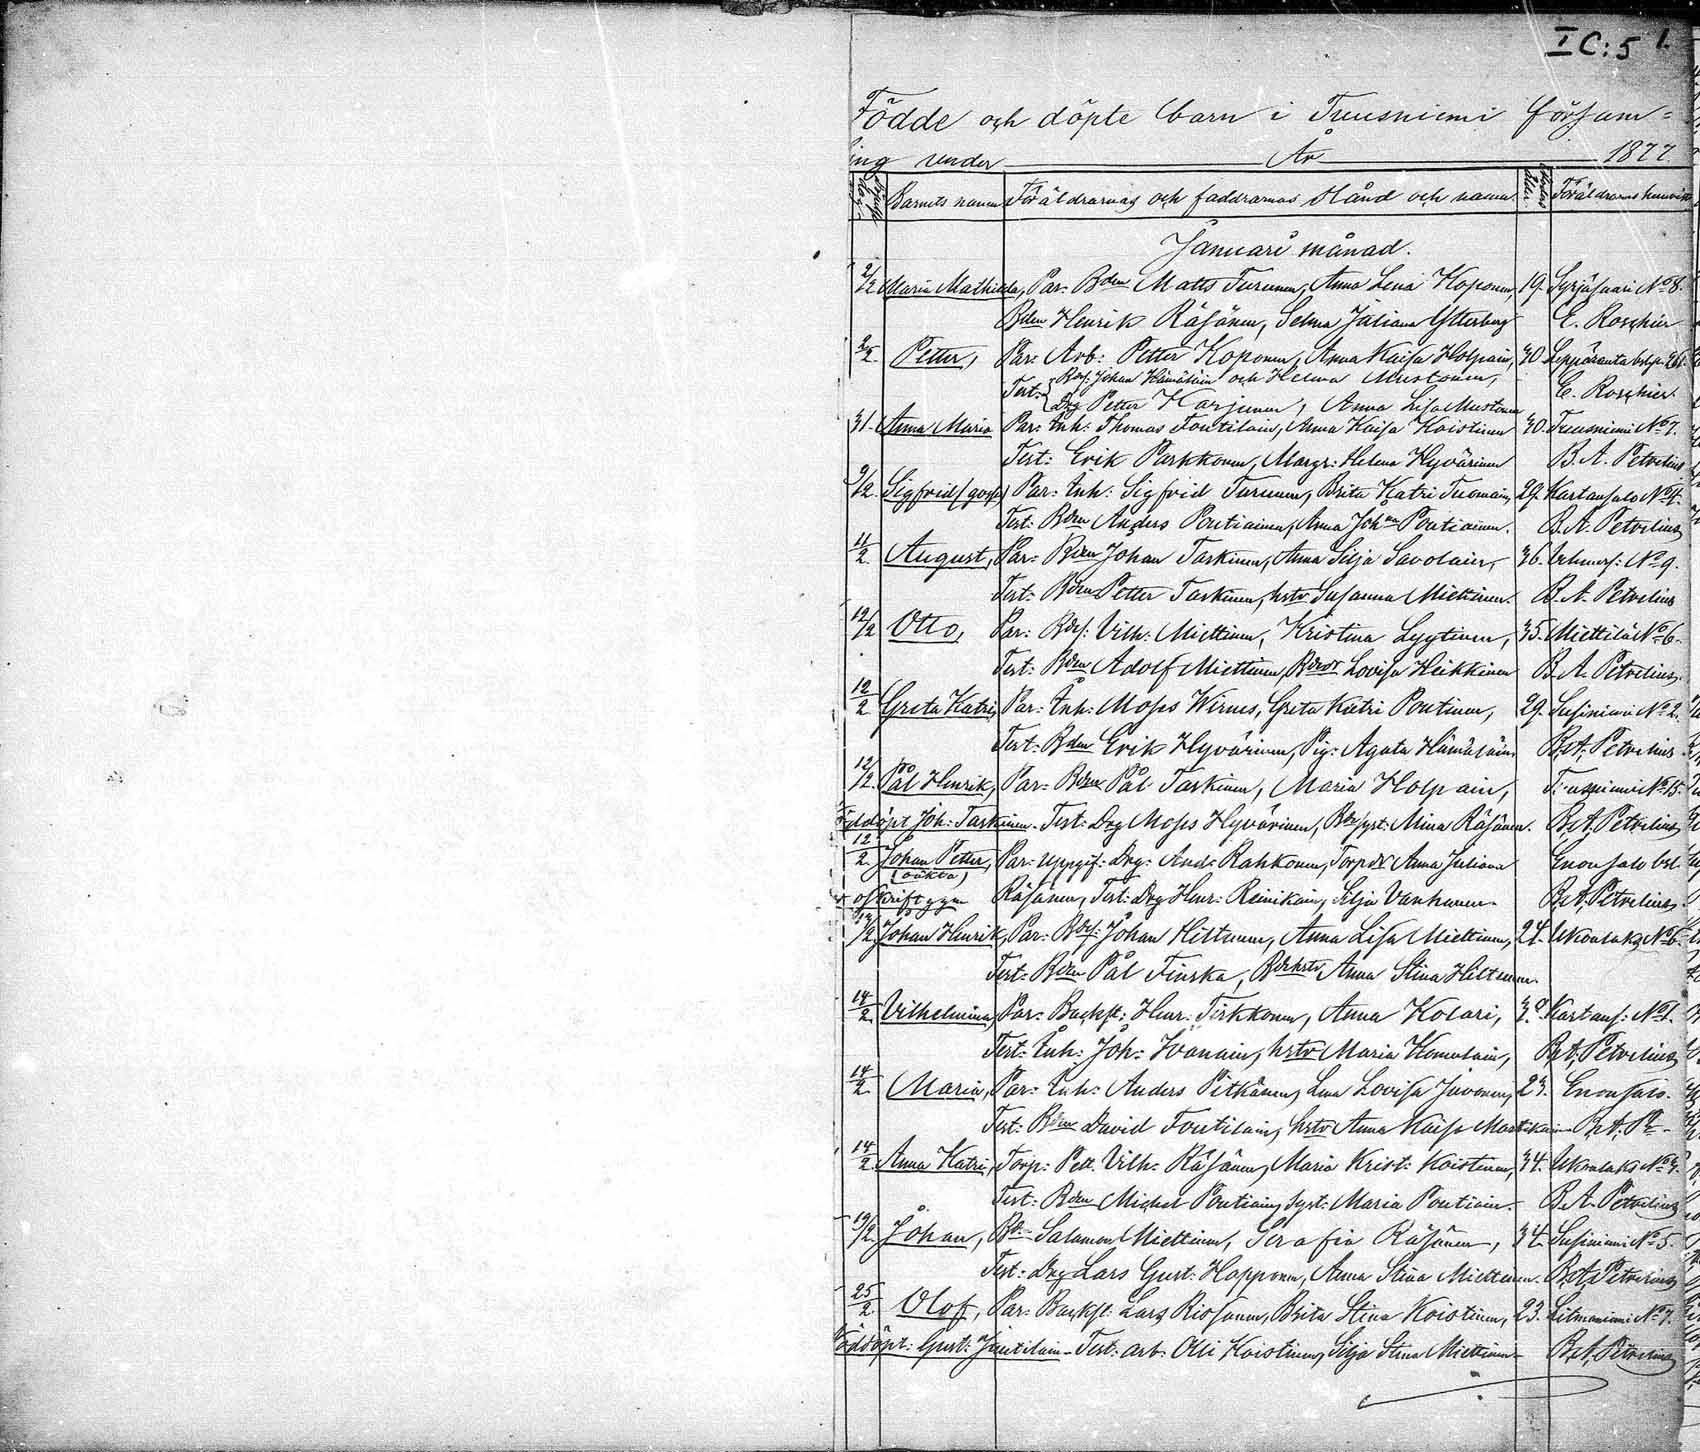 I C:5 1.
Födde och döpte barn i Tuusniemi försam=
ling under År 1877
Barnets namn Föräldrarnas och faddrarnas stånd och namn. Föräldrarnas hemvist
Januari månad.
2/2 Maria Mathilda, Par: Bden Matts Turunen, Anna Lena Koponen, 19. Syrjäsaari No 8.
Bden Henrik Räsänen, Selma Juliana Ytterberg E. Roschier
2/2. Petter, Par: Arb: Petter Koponen, Anna Kaisa Holpain, 30. Leppäranta
Test: Bdes: Johan Hämäläin och Helena Mustonen, E. Roschier
Drg Petter Karjunen, Anna Lisa Mustonen
31. Anna Maria Par: Inh: Thomas Foutilain, Anna Kaisa Koistinen 30. Tuusniemi No 7.
Test: Erik Parkkonen, Margr: Helena Hyvärinen B. A. Petrelius
9/2. Sigfrid Par: Inh: Sigfrid Turunen, Brita Katri Tuomain, 29. Kartansalo No 4.
Test: Bden Anders Poutiainen, Anna Johna Poutiainen. B. A. Petrelius
11/2. August, Par: Bden Johan Taskinen, Anna Silja Savolain, 36. No 9.
Test: Bden Petter Taskinen, hstr Susanna Miettinen. B. A. Petrelius
12/2 Otto, Par: Bdes: Vilh: Miettinen, Kristina Lyytinen, 35. Miettilä No 6.
Test: Bden Adolf Miettinen, Lovisa Heikkinen B. A. Petrelius.
12/2 Greta Katri, Par: Inh: Moses Wirnes, Greta Katri Poutinen, 29. Susiniemi No 2.
Test: Bden Erik Hyvärinen, Pig: Agata Hämäläin. B. A. Petrelius
12/2. Pål Henrik, Par: Bden Pål Taskinen, Maria Holpain, T:usniemi No 15.
Nöddöpt Joh: Taskinen. Test: Drg Moses Hyvärinen, Mina Räsänen. B. A. Petrelius
12/2. Johan Petter, Par: Uppgif: Drg: And: Rahkonen, Torpdr Anna Juliana Enonsalo
(oäkta)
Räsänen, Test: Drg Henr: Reinikain, Silja Vanhanen. B. A. Petrelius.
Johan Henrik, Par: Bdes: Johan Hiltunen, Anna Lisa Miettinen, 24. Ukonlaks No 6.
Test: Bden Pål Finska, Anna Stina Hiltunen.
14/2. Vilhelmina, Par: Backst: Henr: Tirkkonen, Anna Kolari, Kartans: No 1.
Test: Inh: Joh: Ivanain, hstr Maria Komulain, B. A. Petrelius
14/2. Maria, Par: Inh: Anders Pitkänen, Lena Lovisa Juvonen, 23. Enonsalo.
Test: Bden David Foutilain, hstr Anna Kaisa Martikain B. A. P
14/2. Anna Katri, Torp: Pett. Vilh. Räsänen, Maria Krist: Koistinen, 34. Ukonlaks
Test: Bden Michel Poutiain, Syst: Maria Poutiain. B. A. Petrelius
19/2. Johan, Bde Salamon Miettinen, Serafia Räsänen, 34. Susiniemi No 5.
Test: Drg Lars Gust: Happonen, Anna Stina Miettinen. B. A. Petrelius
25/2. Olof, Par: Backst: Lars Riosanen, Brita Stina Koistinen, 23. Litmaniemi No 7.
Nöddöpt: Gust: Juutilain - Test: arb: Olli Koistinen, Silja Stina Miettinen B. A. Petrelius